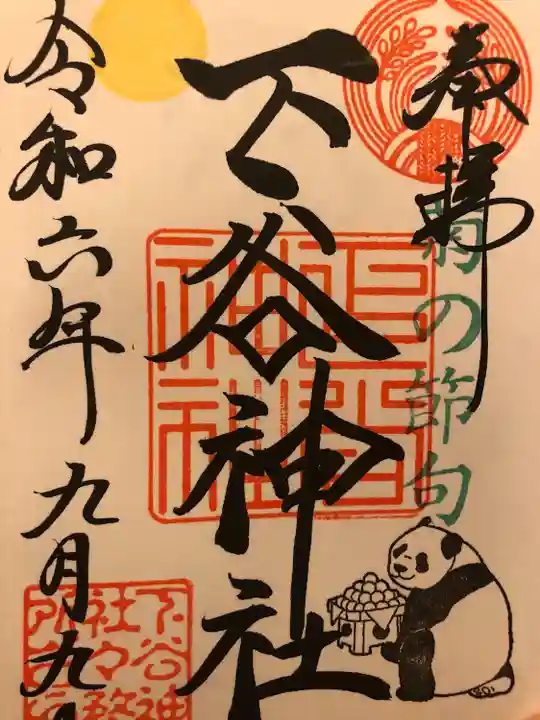 奉拝
菊の節句
下谷神社
下谷神社
令和六年九月九日
下谷神
社々務
所之印